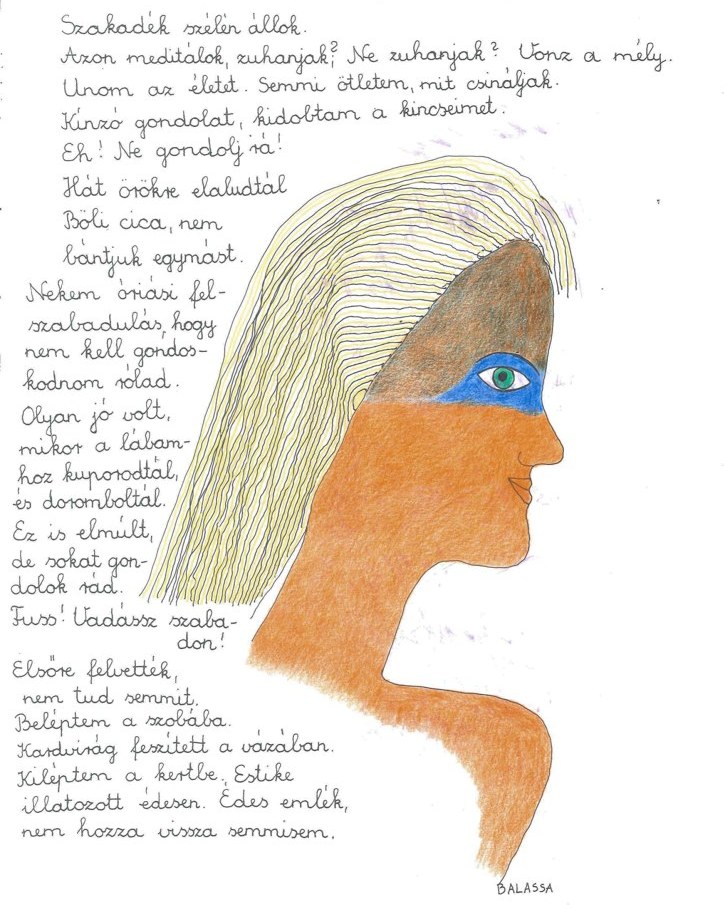 Szakadék szélén állok.
Azon meditálok, zuhanjak? Ne zuhanjak? Vonz a mély.
Unom az életet. Semmi ötletem, mit csináljak.
Kínzó gondolat, kidobtam a kincseimet.
Eh! Ne gondolj rá!
Hát örökre elaludtál
Böli cica, nem
bántjuk egymást.
Nekem óriási fel-
szabadulás, hogy
nem kell gondos-
kodnom rólad.
Olyan jó volt,
mikor a lábam-
hoz kuporodtál,
és doromboltál.
Ez is elmúlt,
de sokat gon-
dolok rád.
Fuss! Vadássz szaba-
don!
Elsőre felvették,
nem tud semmit.
Beléptem a szobába.
Kardvirág feszített a vázában.
Kiléptem a kertbe. Estike
illatozott édesen. Édes emlék,
nem hozza vissza semmisem.
BALASSA